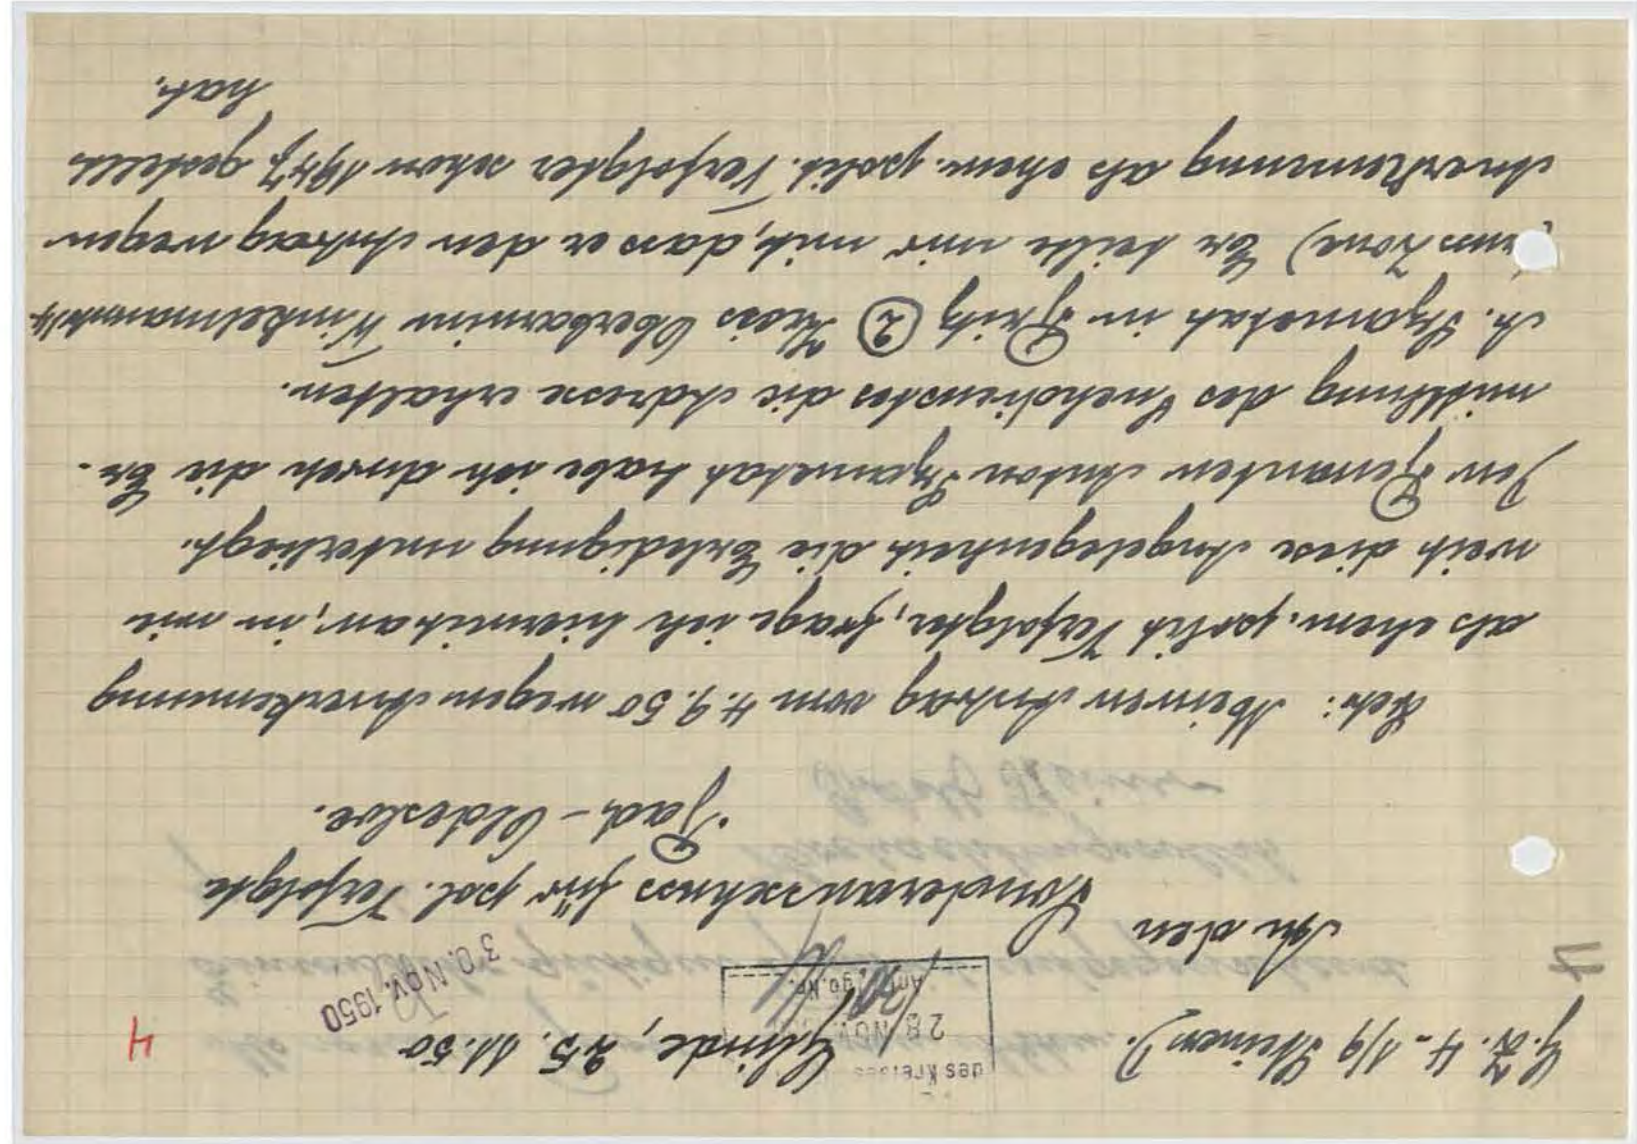 G.Z. 4-1/9 Steiner). Glinde, 25. 11. 50
4
des Kreises
28. NOV.
30. Nov. 1950
An den
Sonderausschuss für pol. Verfolgte
Bad-Oldesloe.
Betr: Meinen Antrag vom 4.9.50 wegen Anerkennung
als ehem. polit Verfolgter, frage ich hiermit an, in wie
weit diese Angelegenheit die Erledigung unterliegt.
Den Genannten Anton Szymetat habe ich durch die Er-
mittlung des Suchdienstes die Adresse erhalten.
A. Szymetat in (2) Kreis Oberbarnim Winkelmannstr
(russ Zone) Er teilte mir mit, dass er den Antrag wegen
Anerkennung als ehem. polit. Verfolgter schon 1947 gestellt
hat.